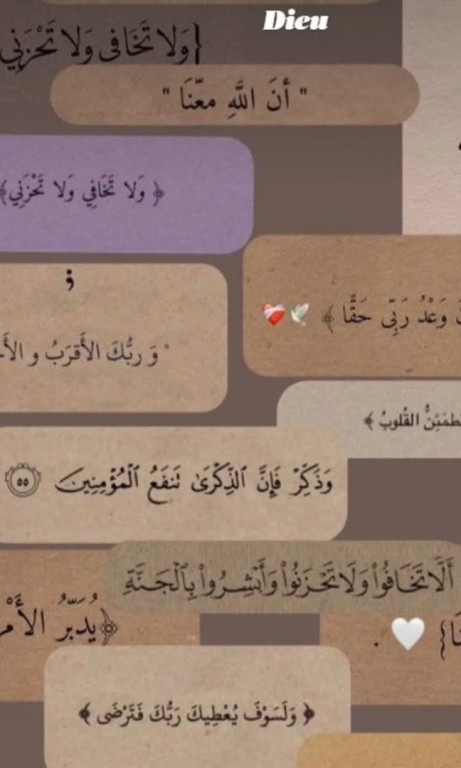 Dieu
{وَلَا تَخَافِى وَلَا تَحْزَنِي
" أنَ اللَّهِ معّنَا "
﴿ وَلا تَخَافِي وَلا تَحْزَنِي﴾
وَعْدُ رَبِّي حَقًّا ﴾ 🕊️❤️‍🩹
و
" وَ ربُّكَ الأَقرَبُ و
القُلوبُ ﴾
وَذَكِّرْ فَإِنَّ ٱلذِّكْرَىٰ تَنفَعُ ٱلْمُؤْمِنِينَ ٥٥
أَلَّا تَخَافُوا۟ وَلَا تَحْزَنُوا۟ وَأَبْشِرُوا۟ بِالْجَنَّةِ
﴿يُدَبِّرُ
نَا} 🤍 .
﴿ وَلَسَوْفَ يُعْطِيكَ رَبُّكَ فَتَرْضَى ﴾